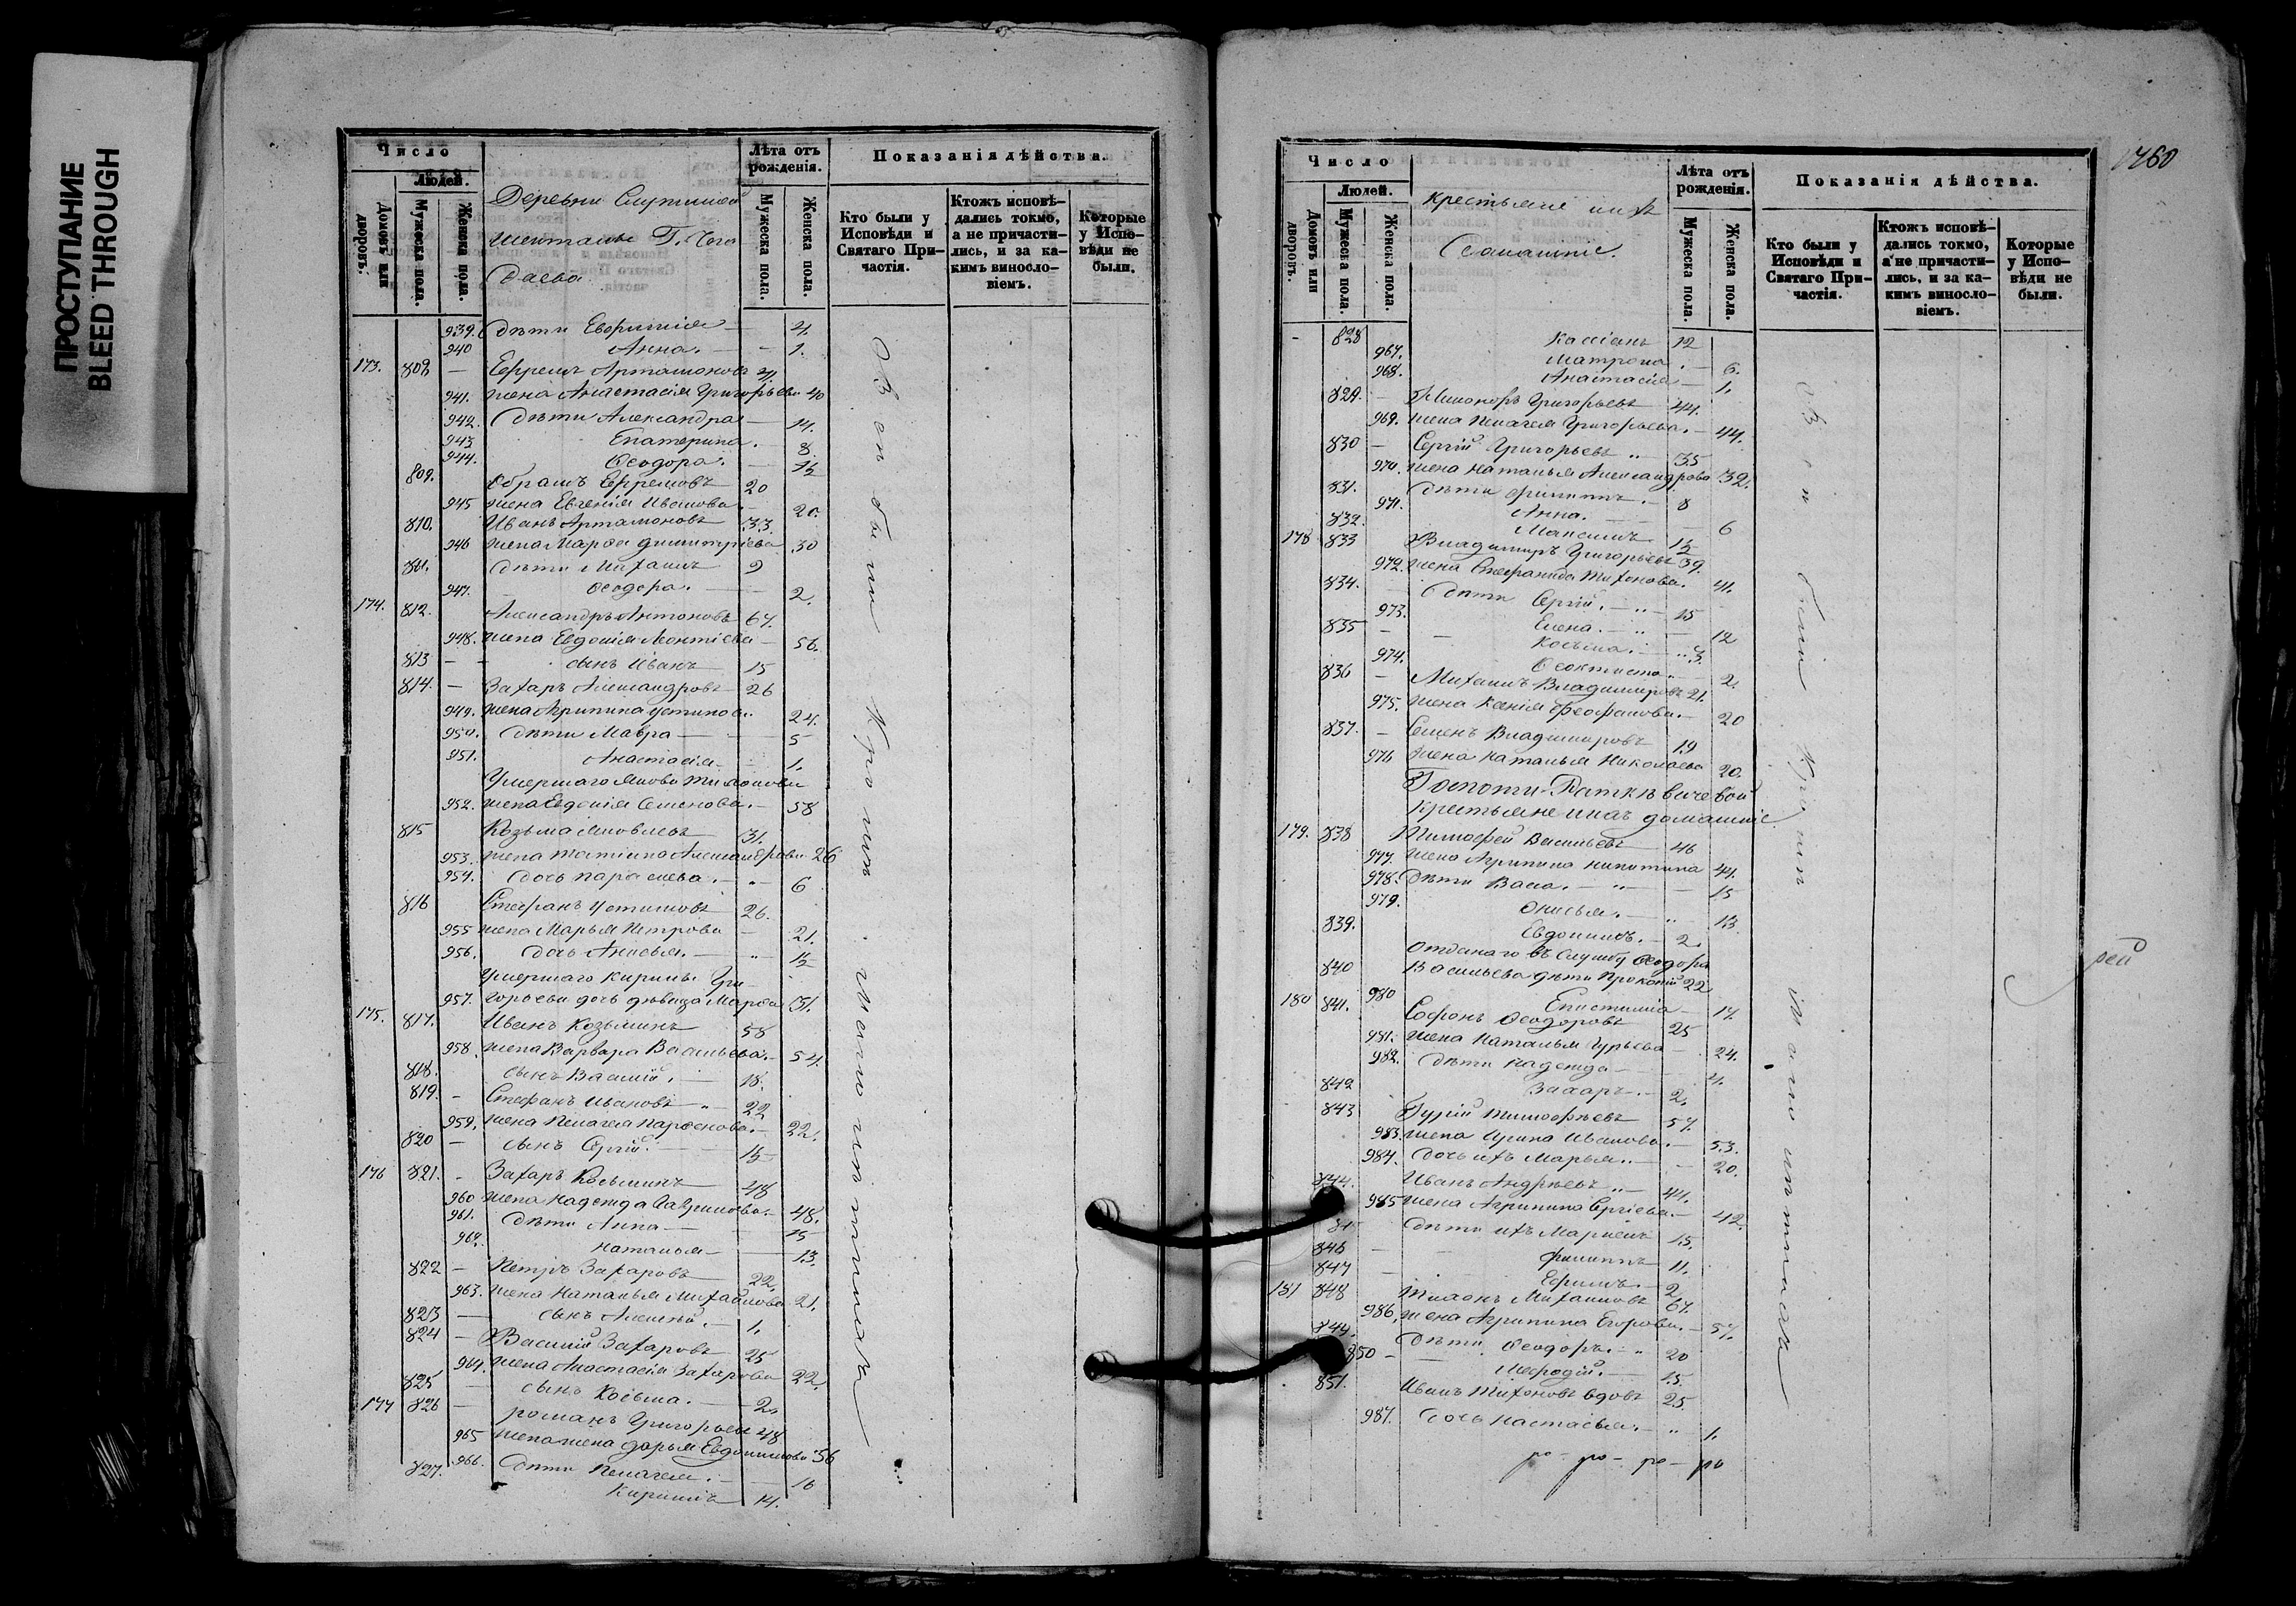 ПРОСТУПАНИЕ
BLEED THROUGH
Число
Людей.
Домовъ или дворовъ.
Мужеска пола.
Женска пола.
Деревни
Лѣта отъ рожденія.
Мужеска пола.
Женска пола.
Показанія дѣйства.
Кто были у Исповѣди и Святаго При-частія.
Ктожъ исповѣ-дались токмо, а не причасти-лись, и за ка-кимъ винословіемъ.
Которые у Испо-вѣди не были.
939. дѣти 4.
940 Анна. 1.
173. 808 Ефремъ Артамоновъ
941. жена Анастасія Григорьева 40
942. дѣти Александра 14.
943 Екатерина. 8.
944. Ѳеодора.
809. Ефремовъ 20
945 жена Евгенія Иванова 20.
810. Иванъ Артамоновъ 33.
946 жена Марѳа Димитріева 30
811. дѣти Михаилъ 9
947. Ѳеодора. 2.
174. 812. Александръ Антоновъ 67.
948. жена Евдокія Леонтіева 56.
813 сынъ Иванъ 15
814. Захаръ Александровъ 26
949. жена Агрипина Устинова 24.
950. дѣти Мавра 5
951. Анастасія 1.
Умершаго Якова
952. жена Евдокія Семенова. 58
815 Козьма Яковлевъ 31.
953. жена Татіана Александрова 26
954. дочь Параскева. 6
816 Стефанъ Устиновъ 26.
955 жена Марья Петрова 21.
956. дочь Анисья.
Умершаго Кирилы Гри-
957. горьева дочь дѣвица Марѳа 31.
175. 817. Иванъ Козьминъ 58
958. жена Варвара Васильева. 54.
818. сынъ Василій. 18.
819. Стефанъ Ивановъ 22
959. жена Пелагея Парѳенова. 22.
820 сынъ Сергій.
176 821. Захаръ Косьминъ 48
960 жена Надежда Гаврилова. 48.
961. дѣти Анна 15
962. Наталья 13.
822 Петръ Захаровъ 22.
963. жена Наталья Михайлова 21.
823 сынъ Алексѣй. 1.
824 Василій Захаровъ 25
964. жена Анастасія Захарова 22.
825 сынъ Косьма. 2.
177 826 Романъ Григорьевъ 48
965 жена Дарья Евдокимова 56
966. дѣти Пелагея. 16
827. Кирилъ 14.
Оз ен были
1760
Число
Людей.
Домовъ или дворовъ.
Мужеска пола.
Женска пола.
Крестьяне ихъ
Лѣта отъ рожденія.
Мужеска пола.
Женска пола.
Показанія дѣйства.
Кто были у Исповѣди и Святаго При-частія.
Ктожъ исповѣ-дались токмо, а не причасти-лись, и за ка-кимъ винословіемъ.
Которые у Испо-вѣди не были.
828 Кассіанъ 12
967. Матрона. 6.
968. Анастасія 1.
829. Никоноръ Григорьевъ 44.
969. жена Пелагея Григорьева. 44.
830 Сергій Григорьевъ 35
970. жена Наталья Александрова 32.
831. дѣти Филиппъ. 8
971. Анна. 6
832. Максимъ
178 833 Владимиръ Григорьевъ 39.
972. жена Стефанида Тихонова. 41.
834. дѣти Сергій. 15
973. Елена. 12
835 Косьма. 3.
974. Ѳеоктиста 2.
836 Михаилъ Владимировъ 21.
975. жена Ксенія Феофанова. 20
837. Семенъ Владимировъ 19
976 жена Наталья Николаева 20.
Крестьяне ихъ домашніе
179. 838 Тимоѳей Васильевъ 46
977. жена Агрипина Никитина 44.
978. дѣти Васса. 15
979. Анисья. 13
839. Евдокимъ. 2.
отданаго въ службу Ѳеодора
840 Васильева дѣти Прокопій 22
980 Епистимія 17.
180 841. Софонъ Ѳеодоровъ 25
981. жена Наталья Гурьева 24.
982. дѣти Надежда 4.
842 Захаръ. 2.
843 Гурій Тимоѳѣевъ 57.
983. жена Ирина Иванова. 53.
984. дочь ихъ Марья. 20.
844. Иванъ Андрѣевъ 44.
985 жена Агрипина Сергіева. 42.
дѣти ихъ 15.
846 Филиппъ 11.
847 Ефимъ. 2
181 848 Тихонъ Михаиловъ 67.
986. жена Агрипина Егорова. 57.
849. дѣти Ѳеодоръ. 20
850 Меѳодій. 15.
851. Иванъ Тихоновъ вдовъ 25.
987. дочь Настасья. 1.
рей